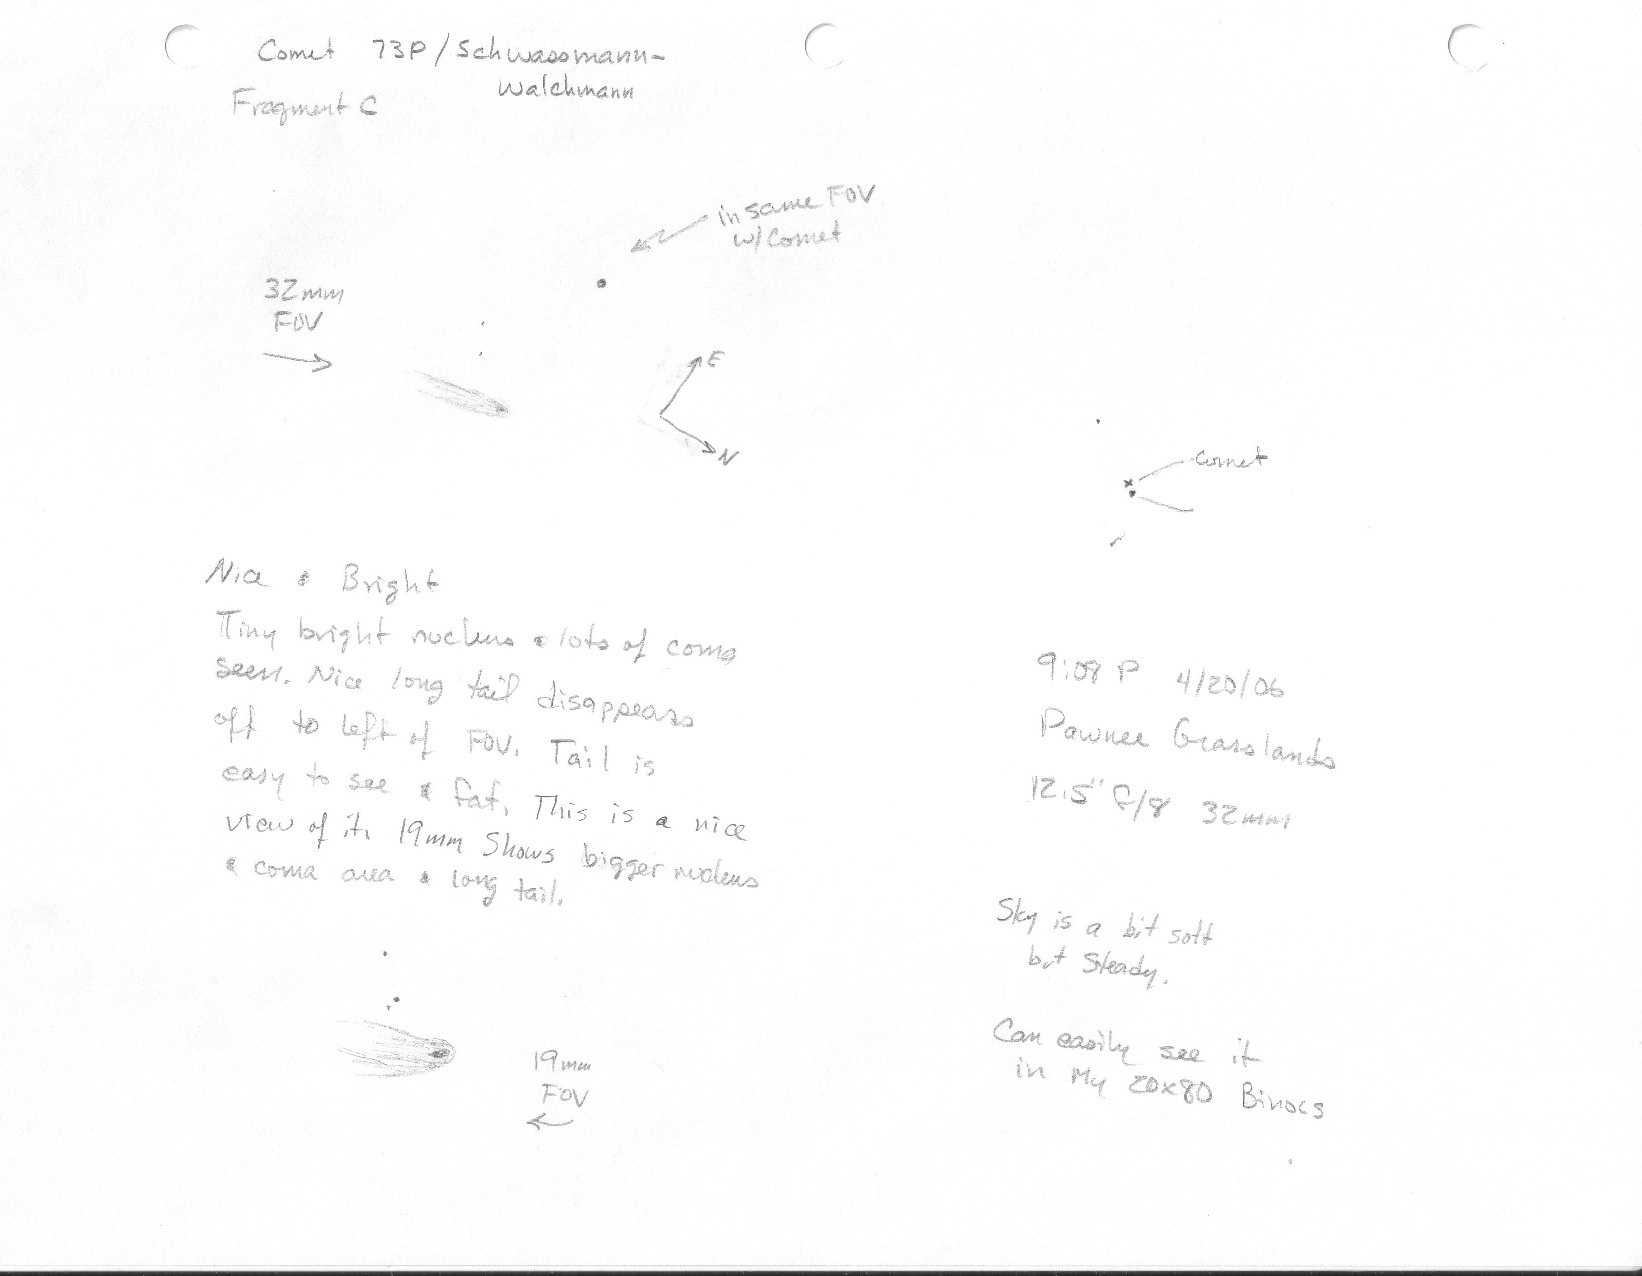 Comet 73P/Schwassmann-
Walchmann
Fragment C
in same FOV
w/Comet
32mm
FOV
E
N
Comet
Nice & Bright
Tiny bright nucleus & lots of coma
seen. Nice long tail disappears
off to left of FOV. Tail is
easy to see & fat. This is a nice
view of it. 19mm Shows bigger nucleus
& coma area & long tail.
19mm
FOV
9:08 P 4/20/06
Pawnee Grasslands
12.5" f/8 32mm
Sky is a bit soft
but Steady.
Can easily see it
in My 20x80 Binocs